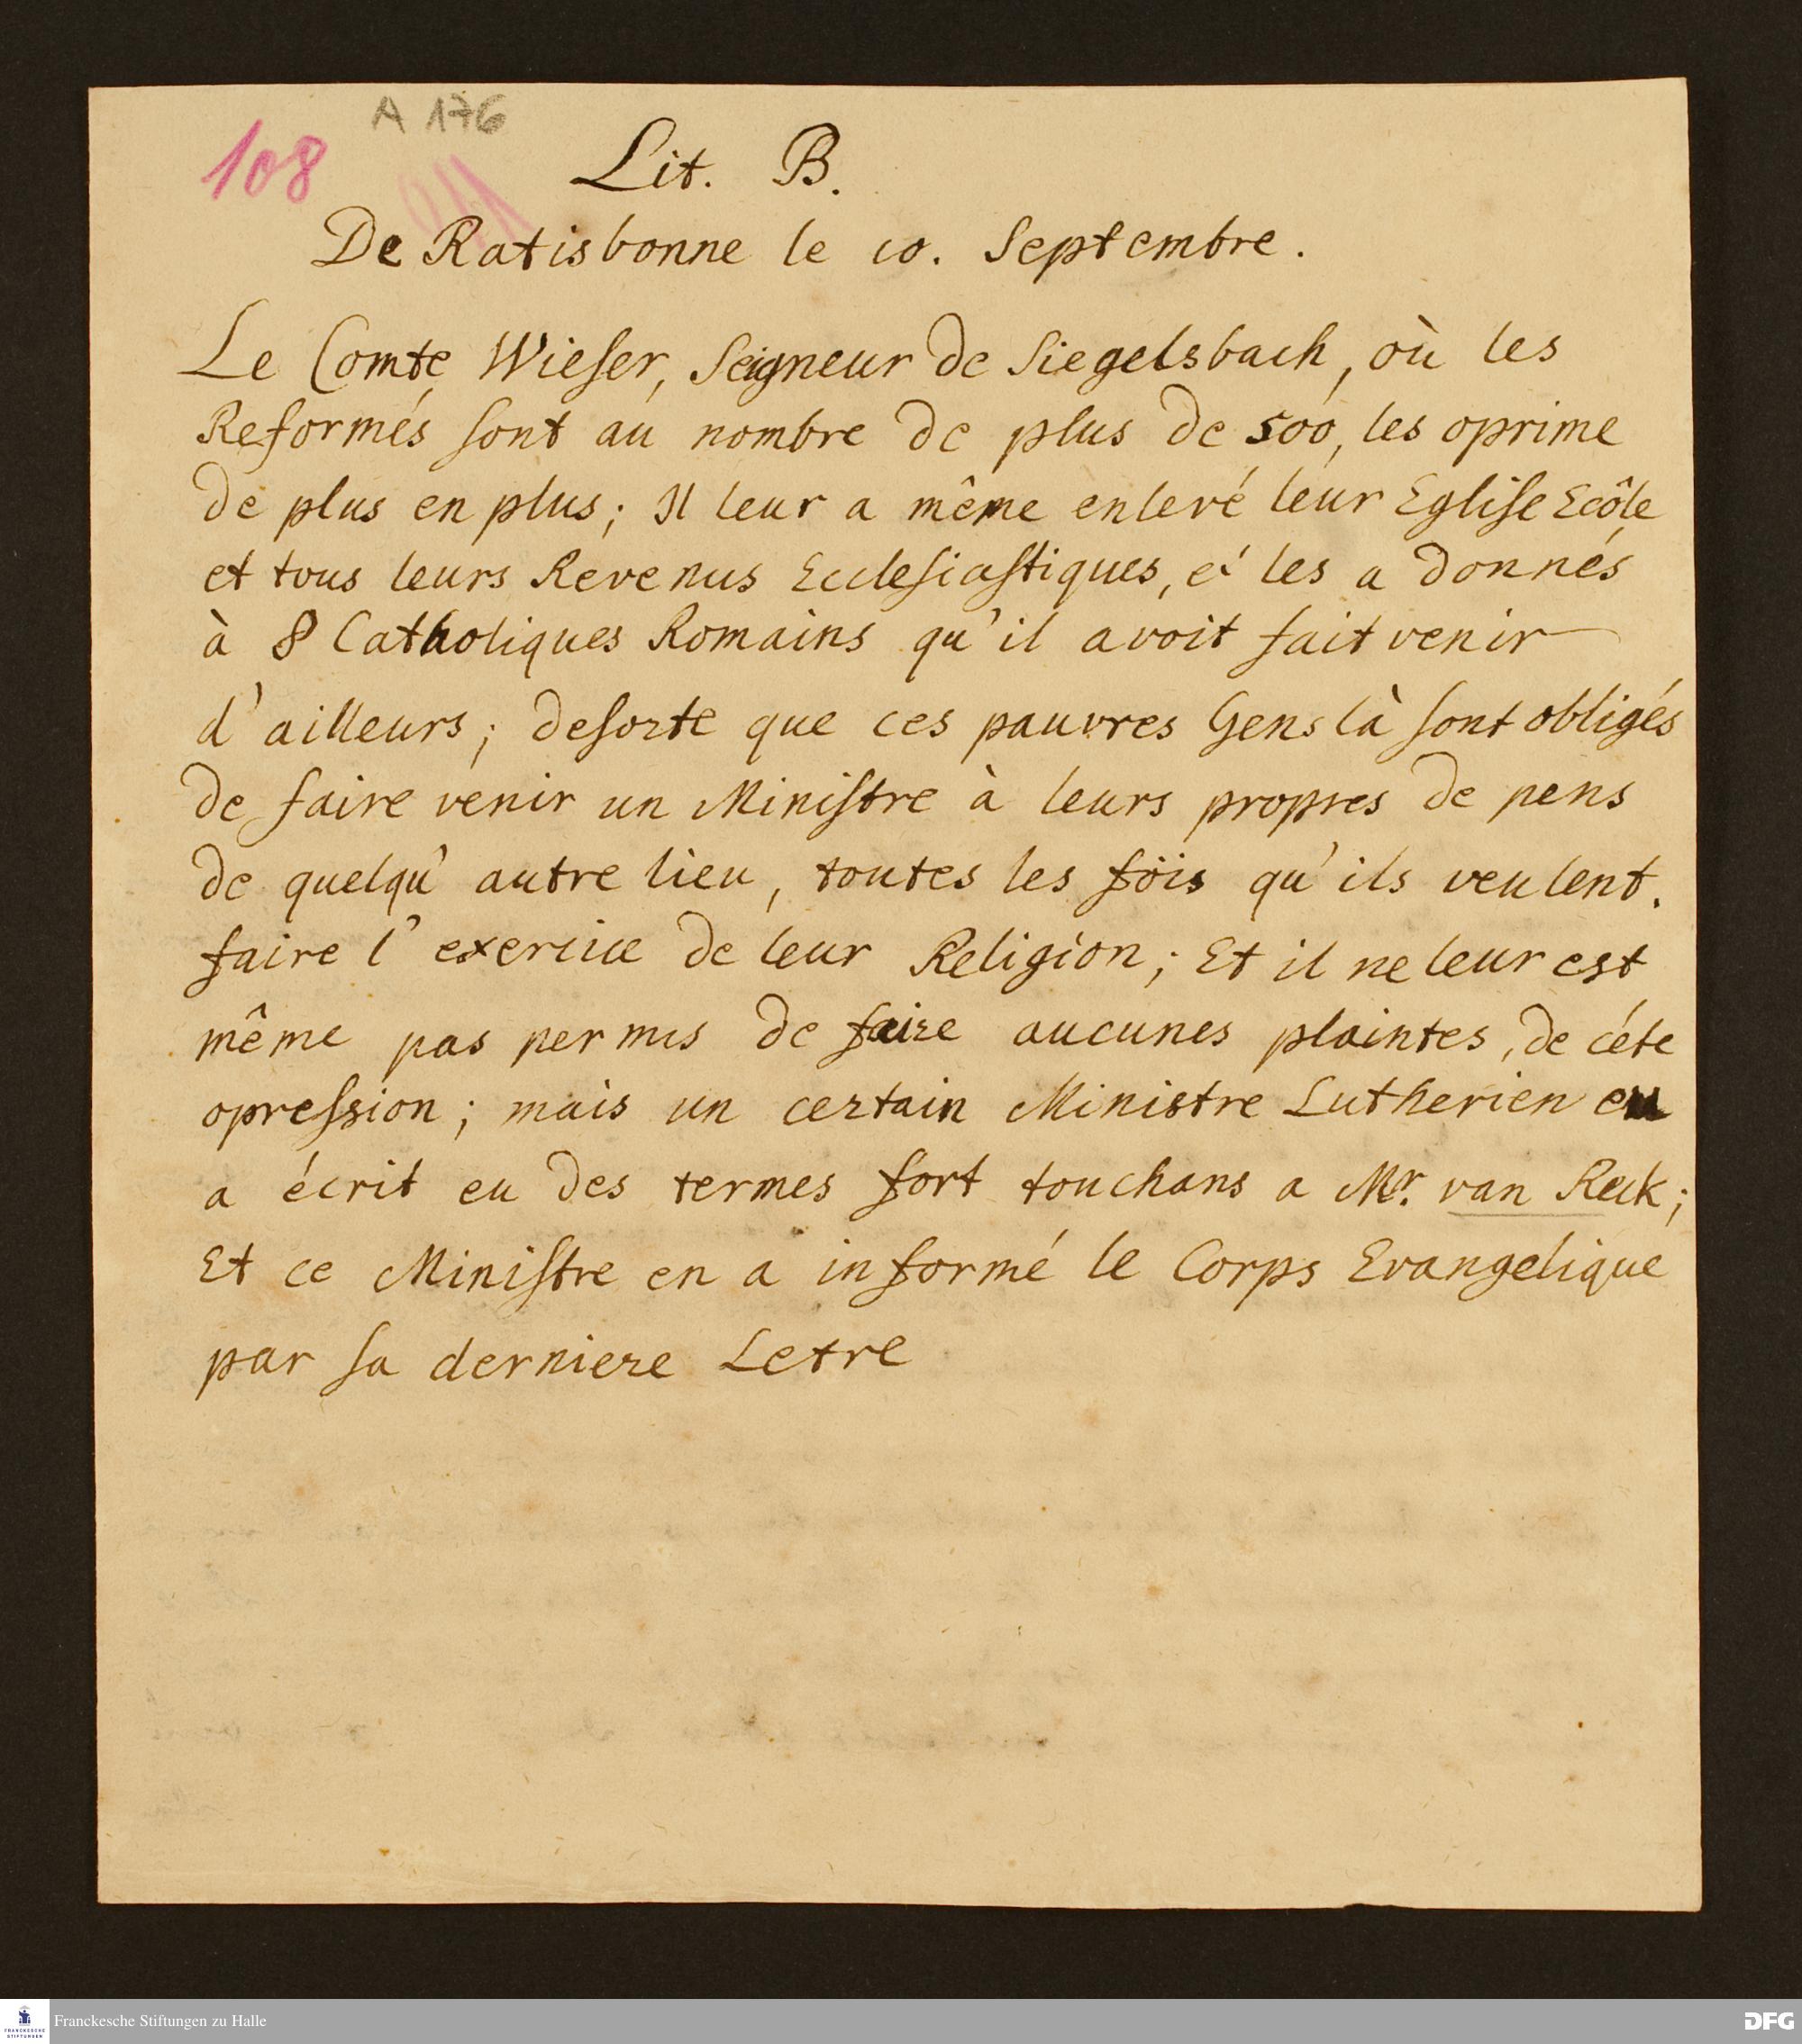 A 176
108
Lit. B.
De Ratisbonne le 10. Septembre.
Le Comte Wieser, Seigneur de Siegelsbach, où les
Reformés sont au nombre de plus de 500, les oprime
de plus en plus; Il leur a même enlevé leur Eglise Ecôle
et tous leurs Revenus Ecclesiastiques, et les a donnés
à 8 Catholiques Romains qu'il avoit fait venir
d'ailleurs; desorte que ces pauvres Gens là sont obligés
de faire venir un Ministre à leurs propres de pens
de quelqu' autre lieu, toutes les föis qu'ils veulent.
faire l'exercice de leur Religion; Et il ne leur est
même pas permis de faire aucunes plaintes, de céte
opression; mais un certain Ministre Lutherien en
a écrit en des termes fort touchans a Mr. van Reck;
Et ce Ministre en a informé le Corps Evangelique
par sa derniere Letre
FRANCKESCHE STIFTUNGEN
Franckesche Stiftungen zu Halle
DFG